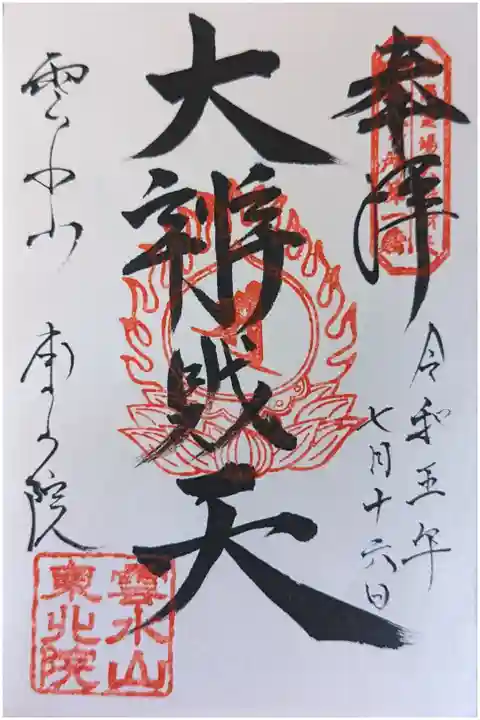 奉拝
令和五年
七月十六日
大辨財天
雲水山 東北院
雲水山
東北院